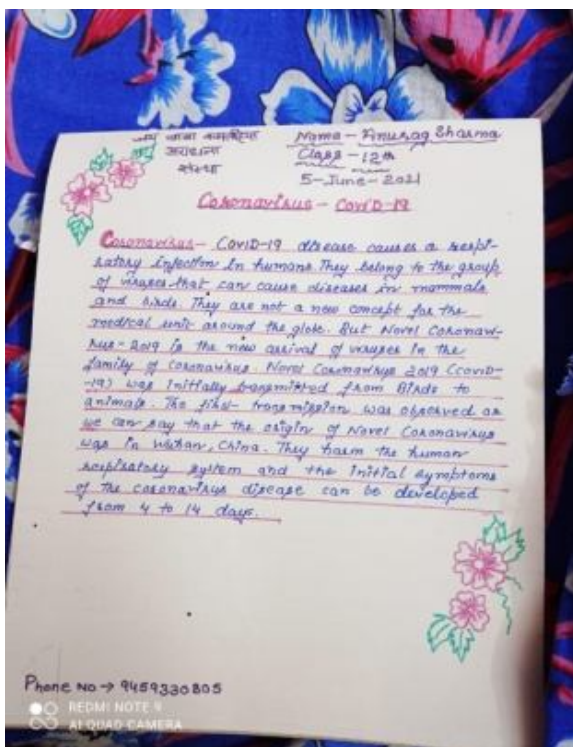 जय बाबा
Name - Anurag Sharma
आराधना
Class - 12th
संस्था
5-June-2021
Coronavirus - COVID-19
Coronavirus - COVID-19 disease causes a respi-
ratory infection in humans. They belong to the group
of viruses that can cause diseases in mammals
and birds. They are not a new concept for the
medical unit around the globe. But Novel Coronavi-
rus-2019 is the new arrival of viruses in the
family of coronavirus. Novel Coronavirus 2019 (COVID-
-19) was initially transmitted from Birds to
animals. The first transmission was observed or
we can say that the origin of Novel Coronavirus
was in Wuhan, China. They harm the human
respiratory system and the initial symptoms
of the coronavirus disease can be developed
from 4 to 14 days.
Phone No → 9459330805
REDMI NOTE 9
AI QUAD CAMERA